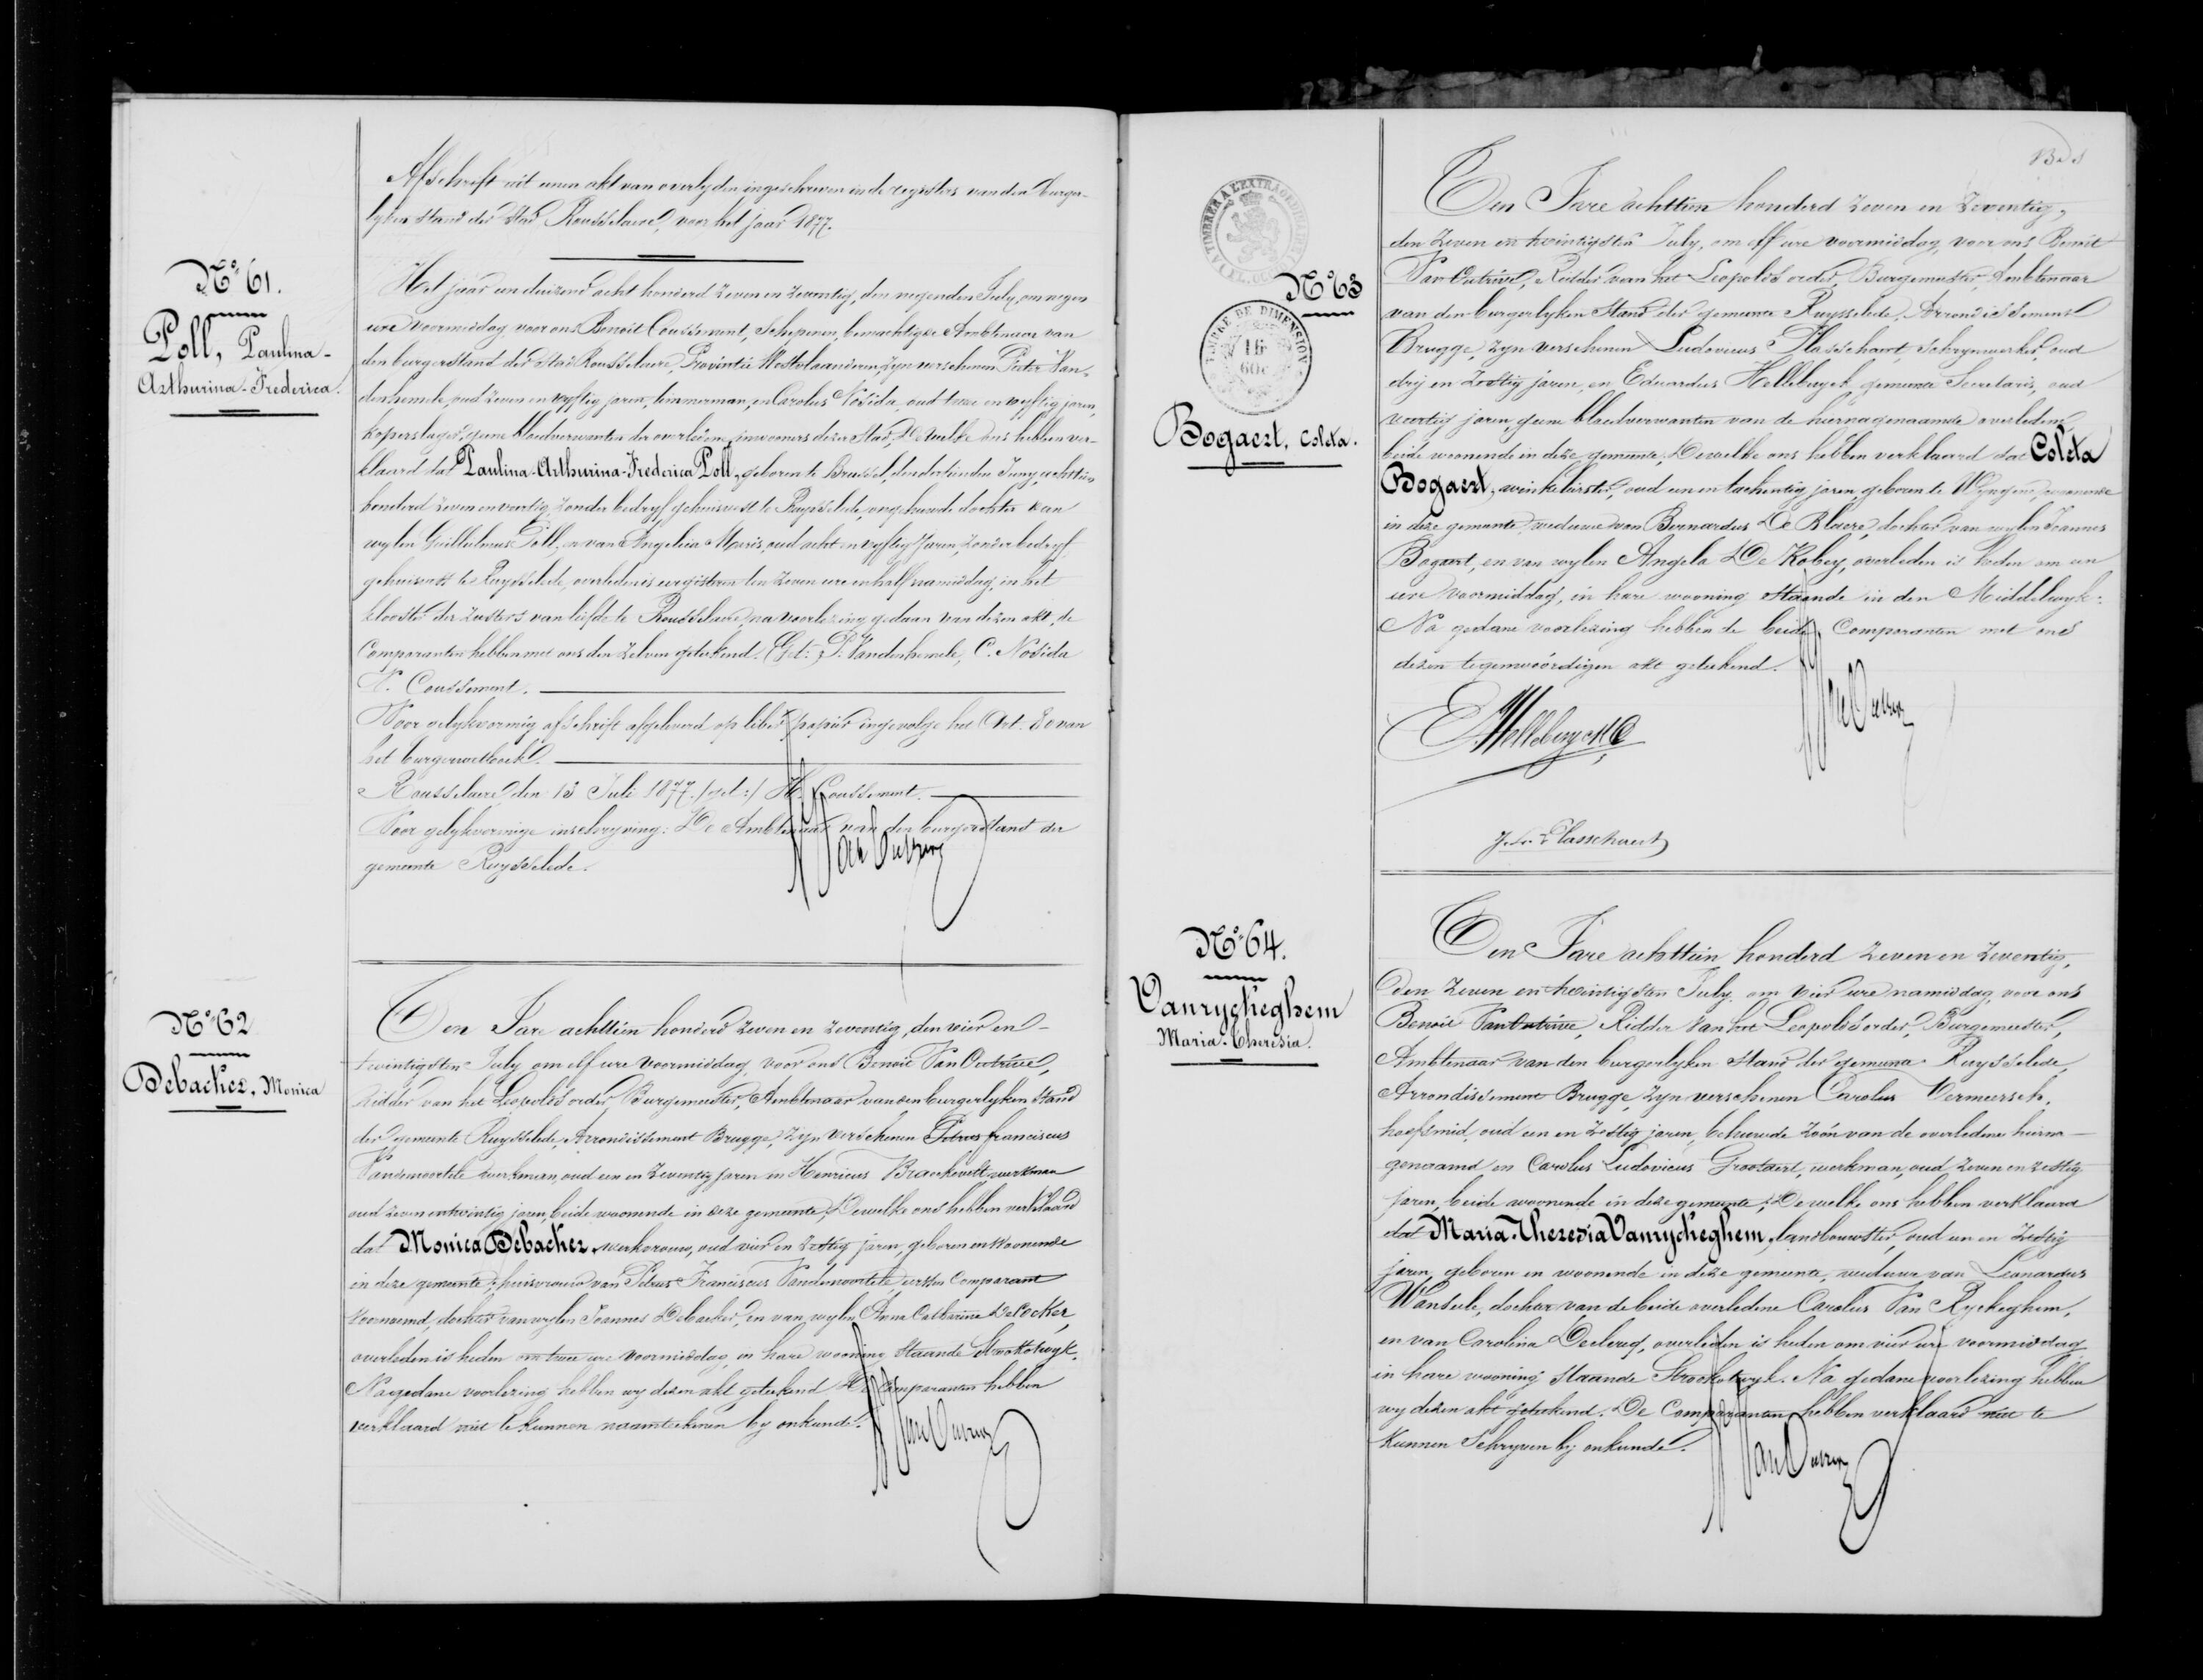 Afschrift uit eenen akt van overlyden ingeschreven in de registers van den burger-
lyken stand der stad Rousselaere, voor het jaar 1877.
N° 61.
Poll, Paulina-
Arthurina-Frederica.
Het jaar een duizend acht honderd zeven en zeventig, den negenden July, om negen
ure voormiddag, voor ons Benoit Coussement, Schepenen, bemachtigde Ambtenaar van
den burgerstand der stad Rousselaere, Provintie Westvlaanderen, zyn verschenen Pieter Van-
denhemele, oud zeven en vyftig jaren, timmerman, en Carolus Nosida, oud twee en vyftig jaren,
koperslager, geene bloedverwanten der overledene, inwooners dezer stad, Dewelke ons hebben ver-
klaard dat Paulina-Arthurina-Frederica Poll, geboren te Brussel, den dertienden Juny achttien
honderd zeven en veertig, zonder bedryf, gehuisvest te Ruysselede, ongehuwde dochter van
wylen Guillielmus Poll, en van Angelica Maris, oud acht en vyftig jaren, zonder bedryf,
gehuisvest te Ruysselede, overleden is eergisteren ten zeven ure en half namiddag, in het
klooster der zusters van liefde te Rousselaere, na voorlezing gedaan van dezen akt, de
Comparanten hebben met ons den zelven geteekend. (Get:) P. Vandenhemele, C. Nosida
Coussement.
Voor gelykvormig afschrift afgeleverd op liber papier ingevolge het Art. 80 van
het burgerwetboek.
Rousselaere, den 13 Juli 1877. (get:) Coussement.
Voor gelykvormige inschryving: De Ambtenaar van den burgerstand der
gemeente Ruysselede.
N° 62
Debacker, Monica
Ten Jare achttien honderd zeven en zeventig, den vier en-
twintigsten July om elf ure voormiddag, voor ons Benoit Van Outrive,
Ridder van het Leopolds order, Burgemeester, Ambtenaar van den burgerlyken Stand
der gemeente Ruysselede, Arrondissement Brugge, zyn verschenen Petrus franciscus
Vandevoorde werkman, oud een en zeventig jaren en Henricus Braekevelt werkman
oud zeven en twintig jaren, beide woonende in deze gemeente, Dewelke ons hebben verklaard
dat Monica Debacker, werkvrouw, oud vier en zestig jaren, geboren en woonende
in deze gemeente, huisvrouw van Petrus Franciscus eersten Comparant
voornoemd, dochter van wylen Joannes Debacker, en van wylen Anna Catharina De Cocker,
overleden is heden om twee ure voormiddag, in hare wooning staande Strookotwyk.
Na gedane voorlezing hebben wy dezen akt geteekend De Comparanten hebben
verklaard niet te kunnen naamteekenen by onkunde.
TIMBRE A L'EXTRAORDINAIRE
TIMBRE DE DIMENSION
60c
N° 63
Bogaert, Coleta.
Ten Jare achttien honderd zeven en zeventig,
den zeven en twintigsten July, om elf ure voormiddag, voor ons Benoit
Van Outrive, Ridder van het Leopolds order, Burgemeester, Ambtenaar
van den burgerlyken Stand der gemeente Ruysselede, Arrondissement
Brugge, zyn verschenen Ludovicus Plasschaert, schrynwerker, oud
dry en zestig jaren, en Eduardus Hellebuyck, gemeente Secretaris, oud
veertig jaren, geene bloedverwanten van de hiernagenaamde overledene,
beide woonende in deze gemeente, Dewelke ons hebben verklaard dat Coleta
Bogaert, winkelierster, oud een en tachentig jaren, geboren te Wyngene, woonende
in deze gemeente, weduwe van Bernardus De dochter van wylen Joannes
Bogaert, en van wylen Angela De Kobey, overleden is heden om een
ure voormiddag, in hare wooning staande in den Middelwyk:
Na gedane voorlezing hebben de beide Comparanten met ons
dezen tegenwoórdigen akt geteekend.
E. Hellebuyck
Plasschaert
N° 64.
Vanryckeghem
Maria-Theresia.
Ten Jare achttien honderd zeven en zeventig,
den zeven en twintigsten July om vier ure namiddag, voor ons
Benoit Van Outrive, Ridder van het Leopolds order, Burgemeester,
Ambtenaar van den burgerlyken Stand der gemeente Ruysselede,
Arrondissement Brugge, zyn verschenen Carolus Vermeersch,
hoefsmid, oud een en zestig jaren, behuwde zoón van de overledene hierna-
genaamd en Carolus Ludovicus Grootaert, werkman, oud zeven en zestig
jaren, beide woonende in deze gemeente, Dewelke ons hebben verklaard
dat Maria-Theresia Vanryckeghem, landbouwster, oud een en zestig
jaren, geboren en woonende in deze gemeente, weduwe van Leonardus
Wansele, dochter van de beide overledene Carolus Van Ryckeghem,
en van Carolina Declercq, overleden is heden om vier ure voormiddag
in hare wooning staande Strookotwyk. Na gedane voorlezing hebben
wy dezen akt geteekend. De Comparanten hebben verklaard niet te
kunnen schryven by onkunde.